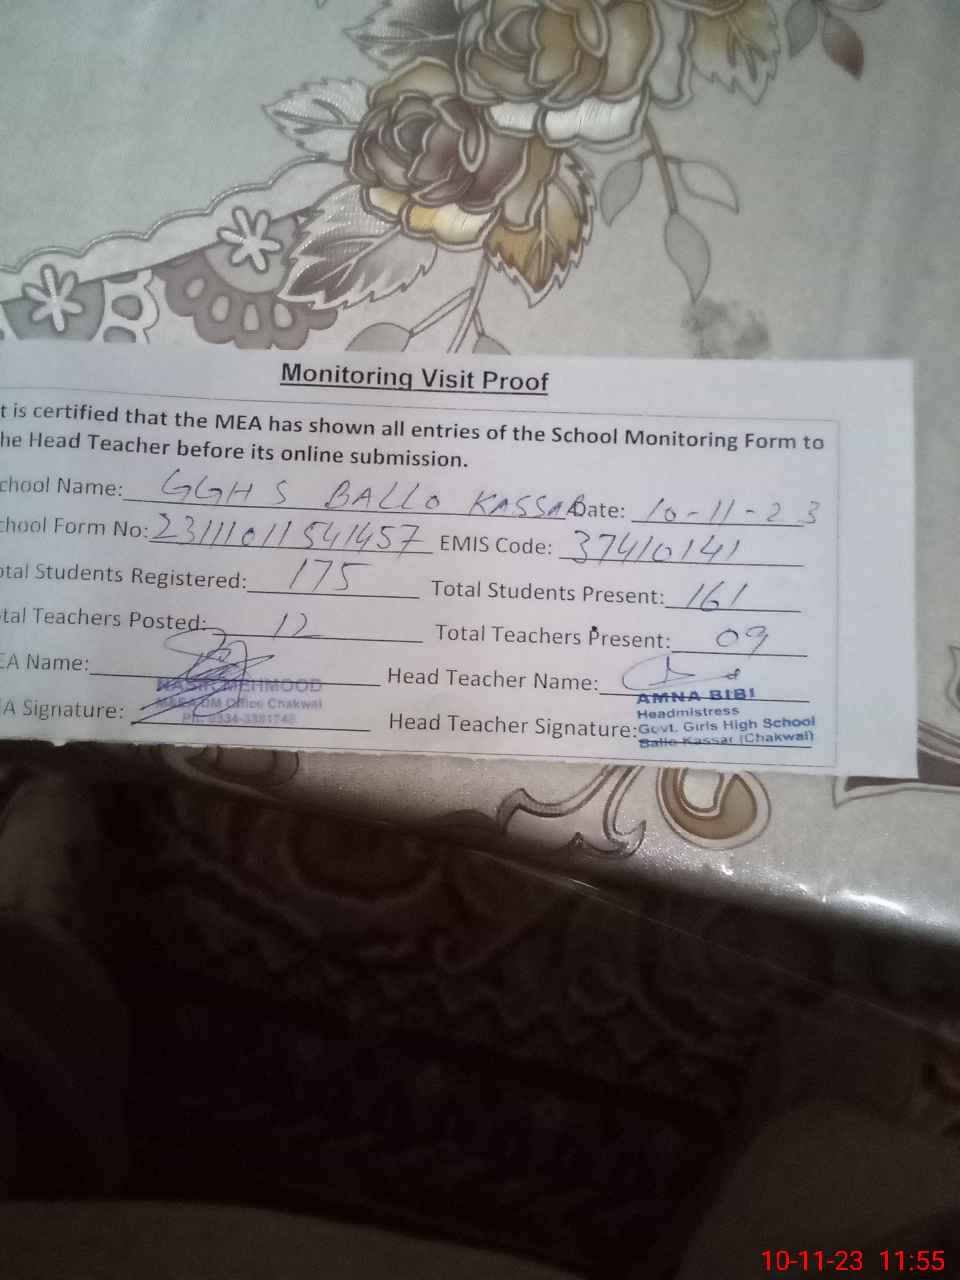 Monitoring Visit Proof
t is certified that the MEA has shown all entries of the School Monitoring Form to
he Head Teacher before its online submission.
chool Name: GGHS BALLO KASSAR Date: 10-11-23
chool Form No: 23111011541457 EMIS Code: 37410141
otal Students Registered: 175 Total Students Present: 161
tal Teachers Posted: 12 Total Teachers Present: 09
EA Name: Head Teacher Name:
NASIR MEHMOOD AMNA BIBI
M&EA DM Office Chakwal Headmistress
EA Signature: Head Teacher Signature: Govt. Girls High School
Ballo Kassar (Chakwal)
10-11-23 11:55